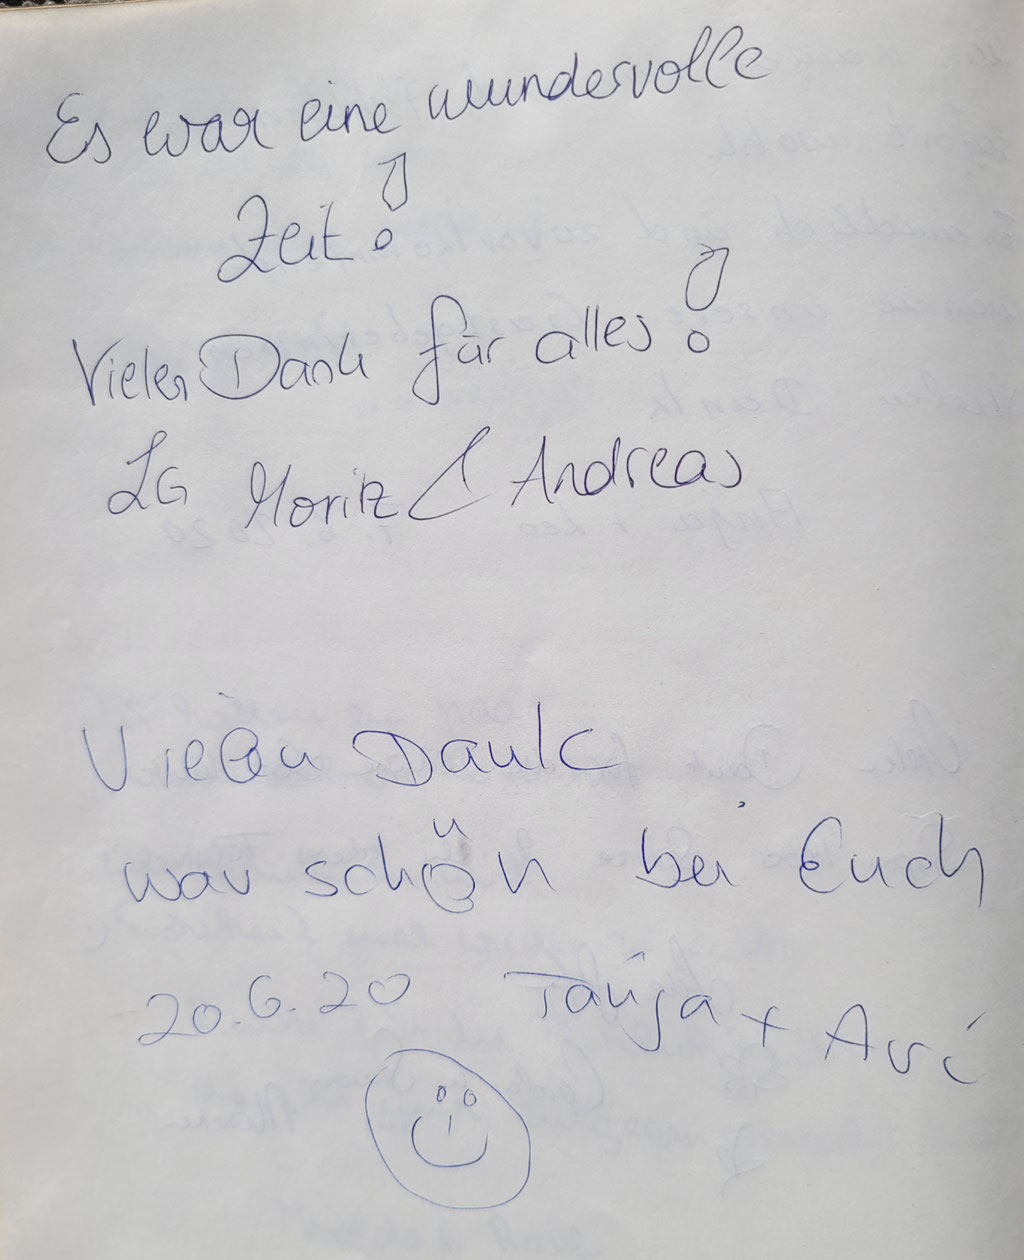 Es war eine wundervolle
Zeit!
Vielen Dank für alles!
LG Moritz & Andreas
Vielen Dank
war schön bei Euch
20.6.20 Tanja + Avi